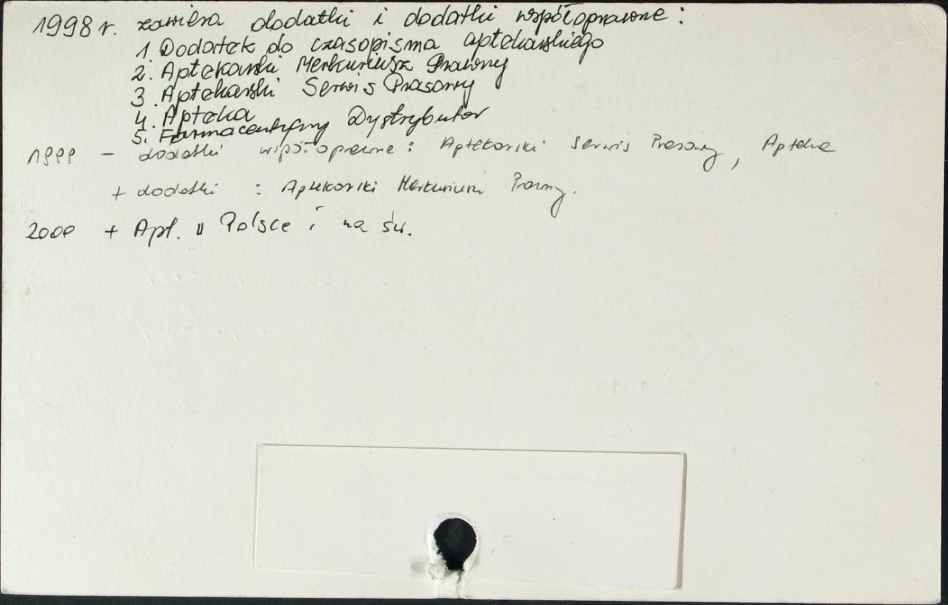 1998 r. zawiera dodatki i dodatki współoprawne:
1. Dodatek do czasopisma aptekarskiego
2. Aptekarski Merkuriusz Prawny
3. Aptekarski Serwis Prasowy
4. Apteka
5. Farmaceutyczny Dystrybutor
1999 - dodatki współoprawne: Aptekarski Serwis Prasowy, Apteka
+ dodatki : Aptekarski Merkuriusz Prawny.
2000 + Apt. w Polsce i na św.